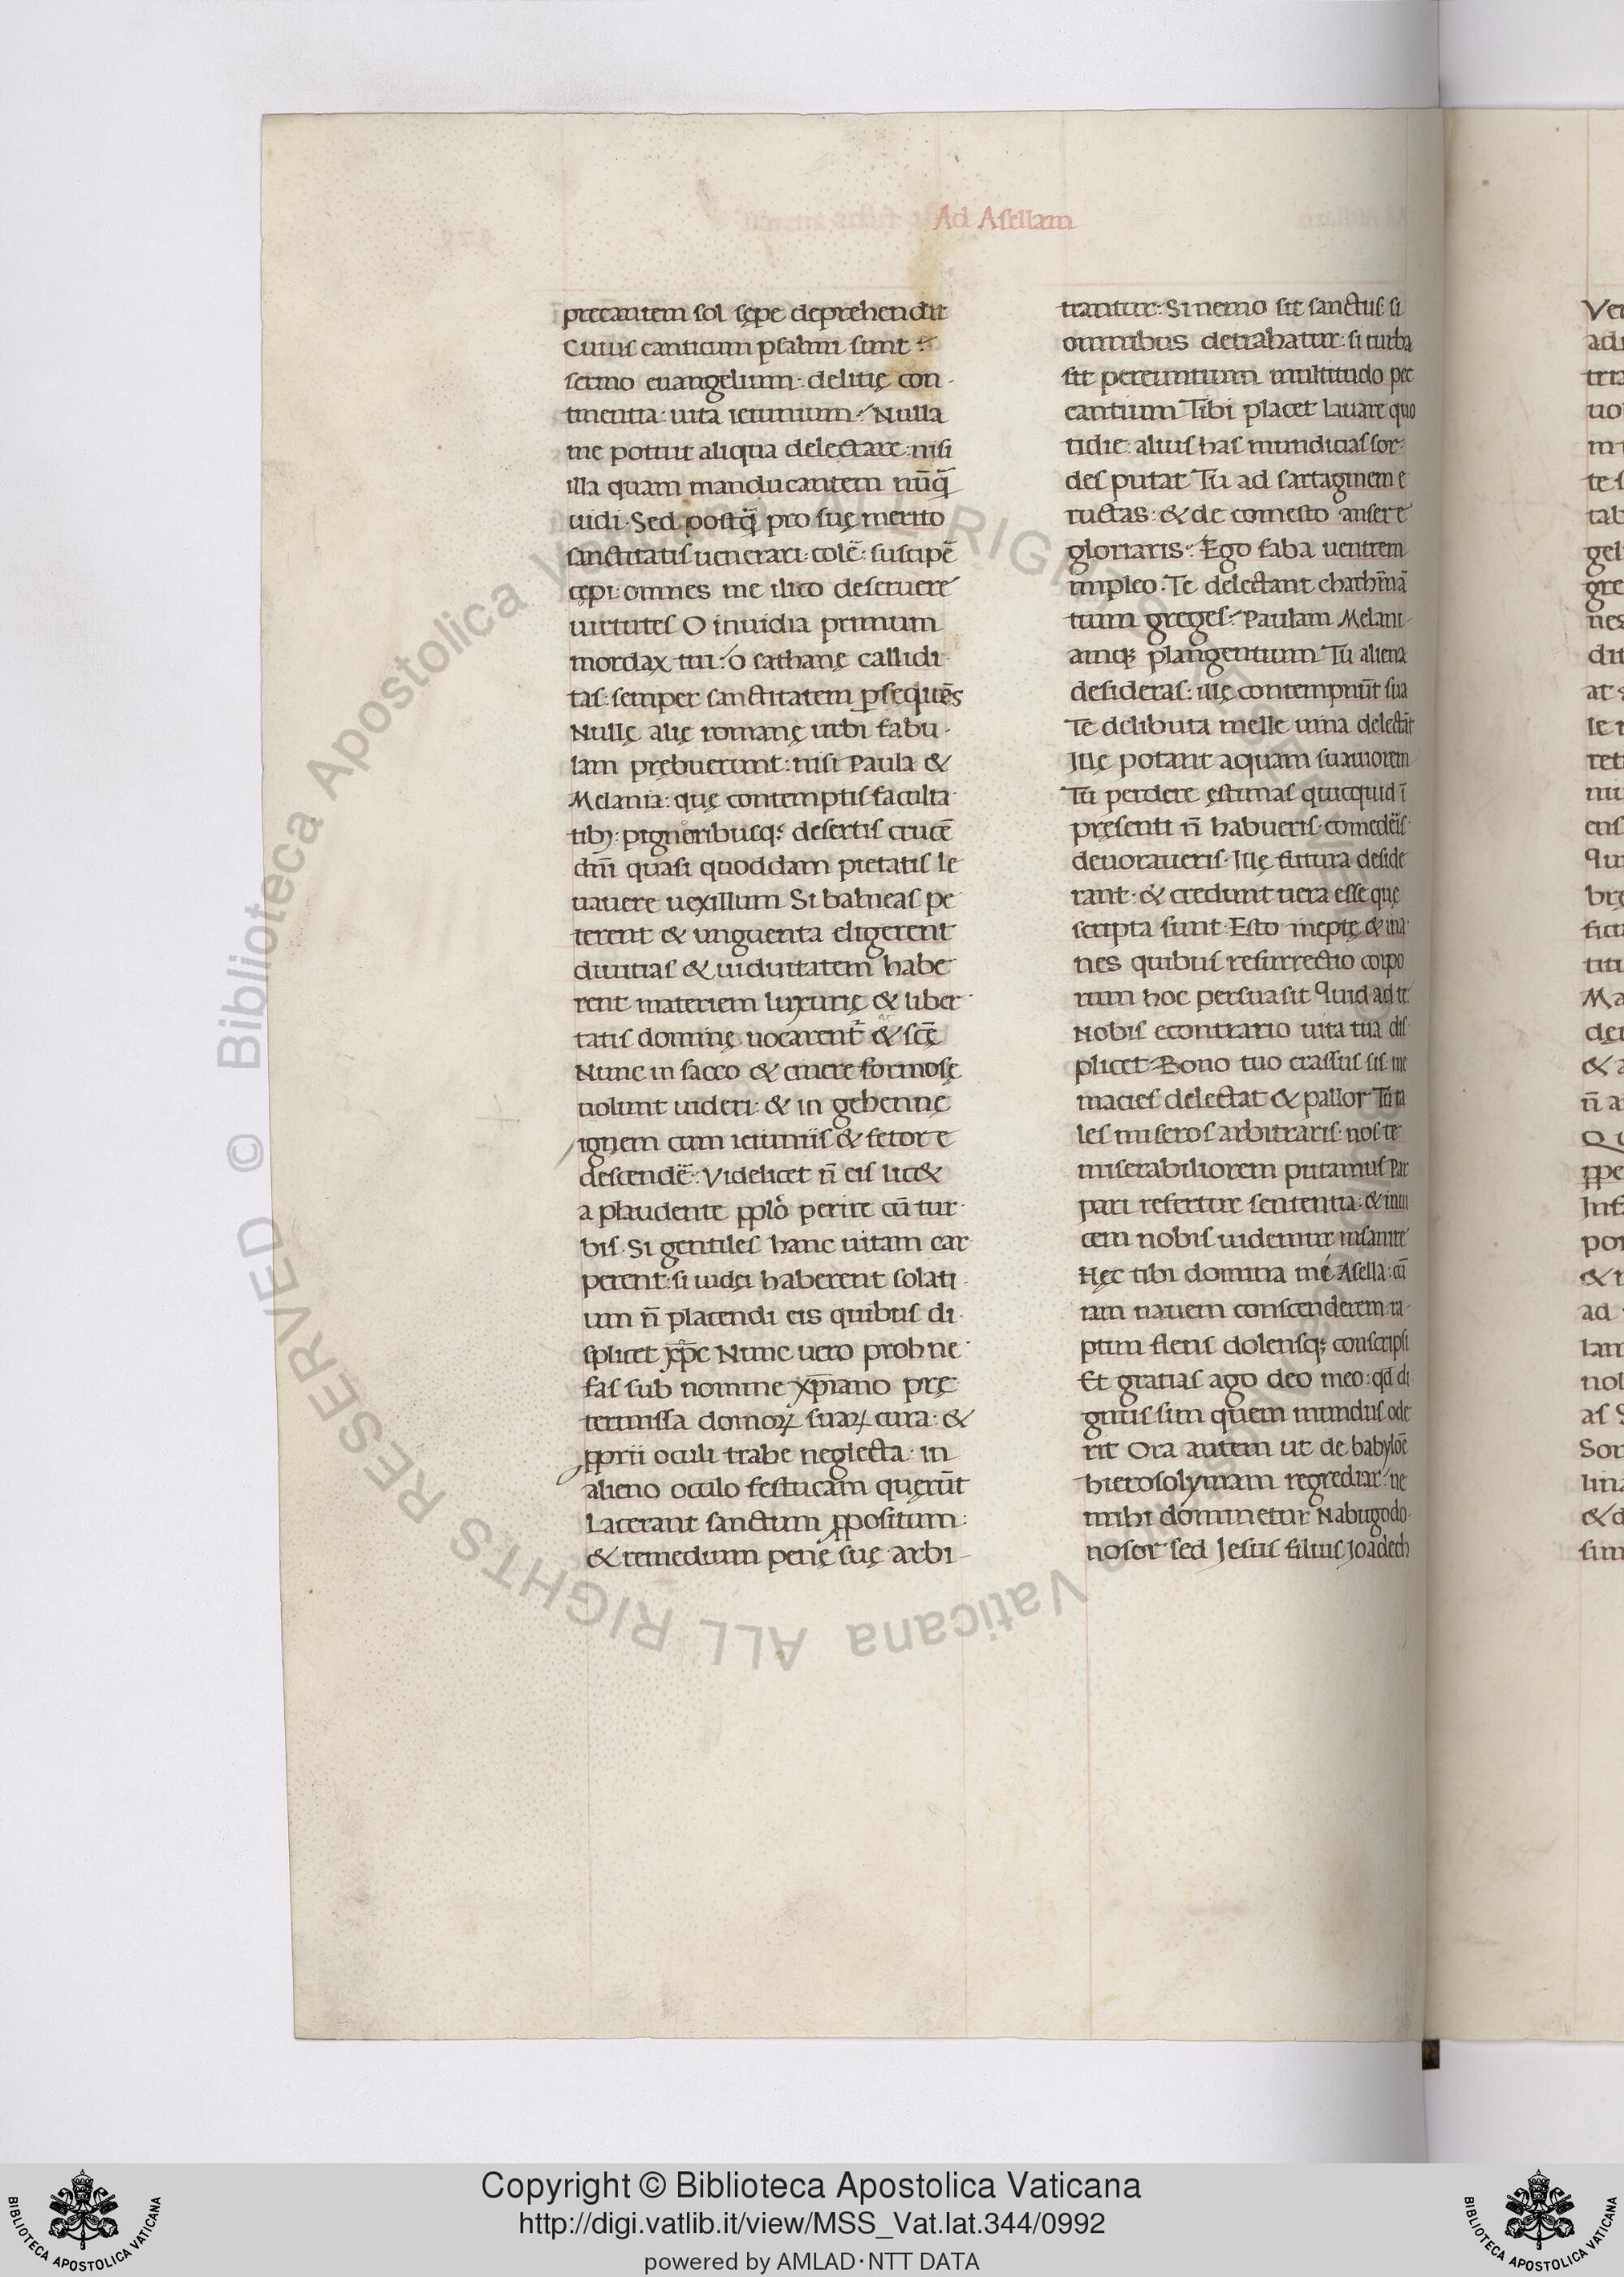 Ad Asellam
precantem sol sępe deprehendit
Cuius canticum psalmi sunt:
sermo euangelium: delitię con-
tinentia: uita ieiunium: Nulla
me potuit aliqua delectare: nisi
illa quam manducantem nūq̄
uidi. Sed postq̄ pro suę merito
sanctitatis uenerari: colē: suscipē
cępi: omnes me ilico deseruere
uirtutes O inuidia primum
mordax tui: o sathanę callidi-
tas: semper sanctitatem ꝑsequēs
Nullę alię romanę urbi fabu-
lam prębuerunt: nisi Paula &
Melania: quę contemptis faculta-
tibꝫ: pignoribusqꝫ desertis crucē
dn̄i quasi quoddam pietatis le
uauere uexillum Si balneas pe
terent & unguenta eligerent
diuitias & uiduitatem habe
rent materiem luxurię & liber-
tatis dominę uocarent̄ & scē
Nunc in sacco & cinere formosę
uolunt uideri: & in gehennę
ignem cum ieiuniis & fetore
descendē: Videlicet n̄ eis lic&
a plaudente pplo perire cū tur-
bis. Si gentiles hanc uitam car
perent: si iudęi haberent solati
um n̄ placendi eis quibus di-
splicet xp̄c Nunc uero proh ne
fas sub nomine xp̄iano prę
termissa domoꝝ suaꝝ cura: &
ꝓprii oculi trabe neglecta: in
alieno oculo festucam quęrūt
Lacerant sanctum ꝓpositum:
& remedium penę suę arbi-
trantur: Si nemo sit sanctus: si
omnibus detrahatur: si turba
sit pereuntium multitudo pec
cantium Tibi placet lauare quo
tidie: alius has mundicias sor-
des putat Tu ad sartaginem e
ructas: & de comesto ansere
gloriaris: Ego faba uentrem
impleo: Te delectant
tum greges: Paulam Melani-
amqꝫ plangentium Tu aliena
desideras: illę contempnūt sua
Te delibuta melle uina delectāt
Illę potant aquam suauiorem
Tu perdere ęstimas quicquid ī
pręsenti n̄ habueris. comedēis
deuoraueris. Illę futura deside
rant: & credunt uera esse quę
scripta sunt. Esto ineptę & ina
nes quibus resurrectio corpo
rum hoc persuasit quid ad te
Nobis econtrario uita tua dis
plicet Bono tuo crassus sis me
macies delectat & pallor Tu ta
les miseros arbitraris: nos te
miserabiliorem putamus Par
pari refertur sententia: & inui
cem nobis uidemur insanire
Hęc tibi domina mę Asella: cū
iam nauem conscenderem ra-
ptim flens dolensqꝫ conscripsi
Et gratias ago deo meo: qđ di
gnus sim quem mundus ode
rit Ora autem ut de babylōe
hierosolymam regrediar: ne
mihi dominetur Nabugodo-
nosor sed Jesus filius Joadech
Copyright © Biblioteca Apostolica Vaticana
http://digi.vatlib.it/view/MSS_Vat.lat.344/0992
powered by AMLAD·NTT DATA
BIBLIOTECA APOSTOLICA VATICANA
BIBLIOTECA APOSTOLICA VATICANA
© Biblioteca Apostolica Vaticana ALL RIGHTS RESERVED